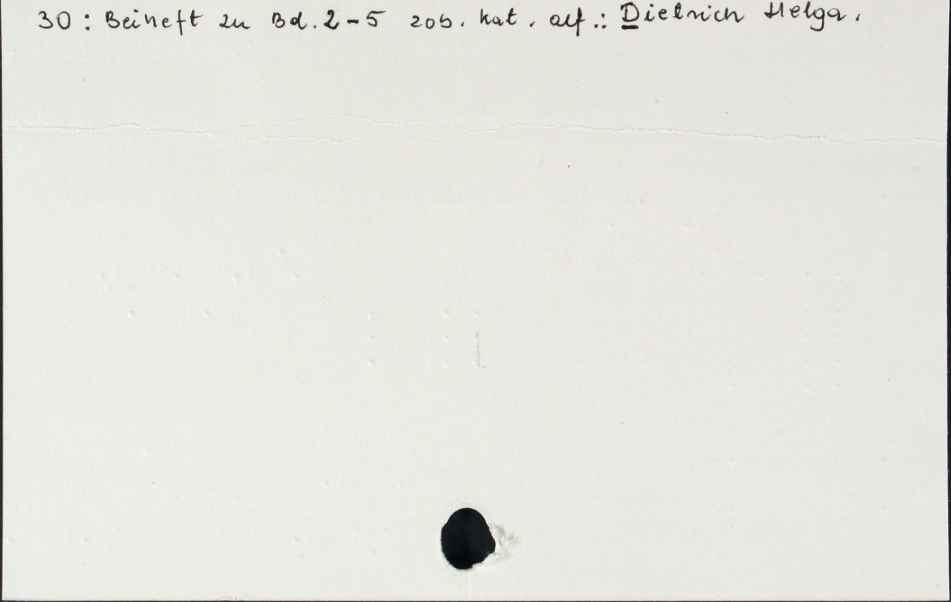 30 : Beiheft zu Bd. 2-5 zob. kat. alf.: Dietrich Helga.